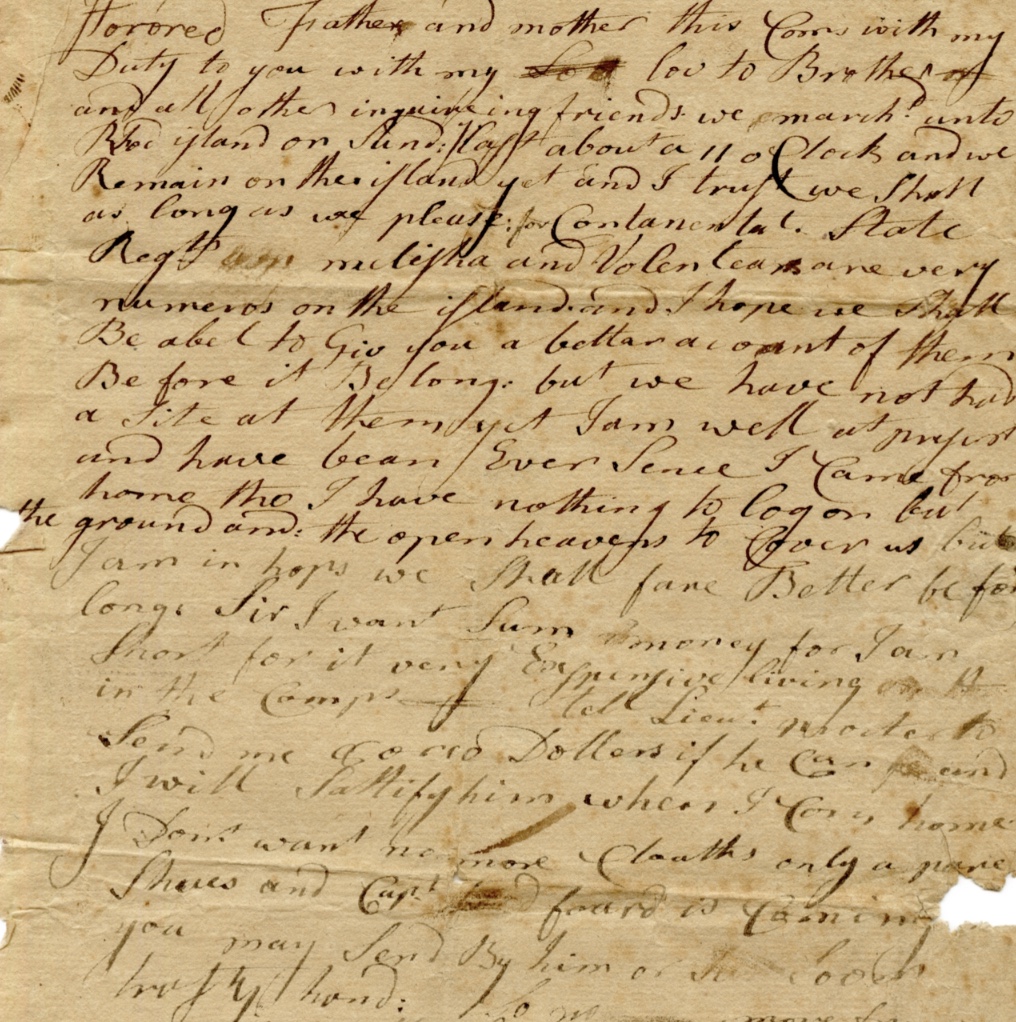 Honored Father and mother this Coms with my
Duty to you with my lov to Brother
and all other inquireing friends we march.d unto
Rhod island on Sund: last about a 11 o Clock and we
Remain on the island yet and I trust we Shall
as long as we please: for Contanental. State
Regt milisha and Volentears are very
numeros on the island. and I hope we Shall
Be abel to Giv you a bettar acount of them
Before it Be long: but we have not had
a Fite at them yet I am well at presint
and have bean Ever Sence I Came from
home tho I have nothing to log on but
the ground and: the open heavens to Cover us but
I am in hops we Shall fare Better be fore
long: Sir I want Sum money for I am
Short for it very Expensive living
in the Camps tell Lieut. to
Send me Dollers if he Can and
I will Sattisfy him when I Com home
I Dont want no more Cloaths only a pare
Shues and Capt foard is Coming
you may Send By him or
trusty hand: So no more